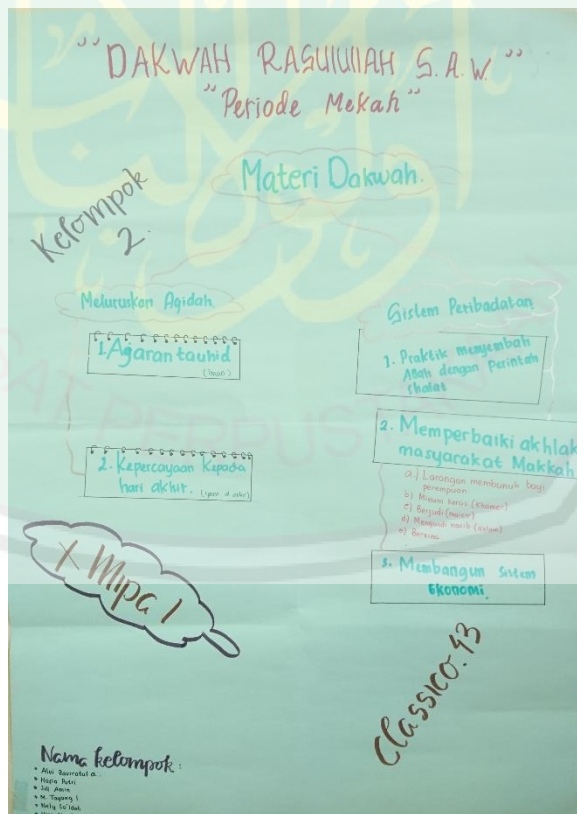 "DAKWAH RASULULLAH S.A.W."
"Periode Mekah"
Materi Dakwah.
Kelompok
2.
Meluruskan Aqidah.
1. Agaran tauhid
(Iman)
2. Kepercayaan Kepada
hari akhir.
X Mipa 1
Sistem Peribadatan
1. Praktik menyembah
Allah dengan Perintah
Shalat
2. Memperbaiki akhlak
masyarakat Makkah
a.) Larangan membunuh bayi
perempuan
b) Minum keras (Khamer)
c) Berjudi
d) Mengundi nasib
e) Berzina
3. Membangun Sistem
Ekonomi.
Classico.43
Nama kelompok:
Putri
Amin